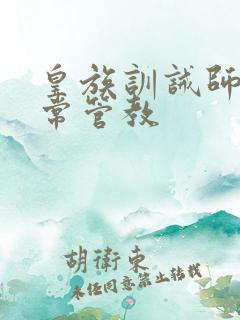 皇族訓誡師
常管教
胡衛東
未经同意禁止转载